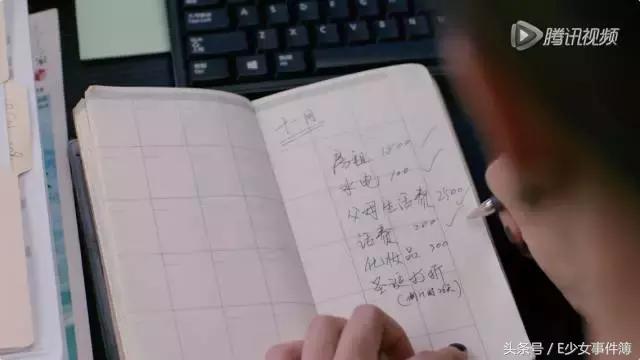 腾讯视频
十一月
房租 1500 ✓
水电 100 ✓
父母生活费 2500
话费 200 ✓
化妆品 300
圣诞打折
头条号 / E少女事件簿